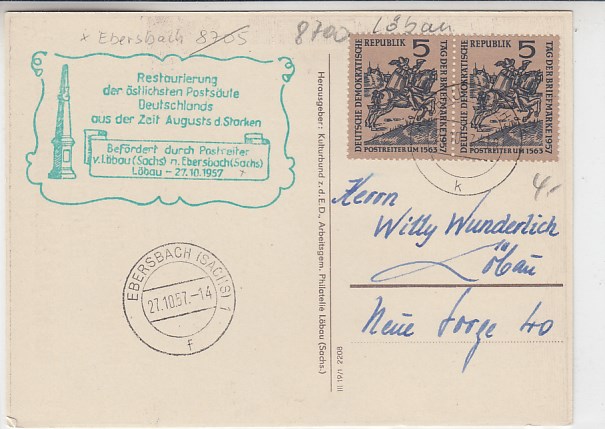 x Ebersbach 8705
8700 Löbau
Restaurierung
der östlichsten Postsäule
Deutschlands
aus der Zeit Augusts d. Starken
Befördert durch Postreiter
v. Löbau (Sachs) n. Ebersbach (Sachs)
Löbau - 27.10.1957
EBERSBACH (SACHS) 1
27.10.57.-14
f
Herausgeber: Kulturbund z. d. E. D., Arbeitsgem. Philatelie Löbau (Sachs.)
III 19/1 2208
DEUTSCHE DEMOKRATISCHE
REPUBLIK 5
TAG DER BRIEFMARKE 1957
POSTREITER UM 1563
DEUTSCHE DEMOKRATISCHE
REPUBLIK 5
TAG DER BRIEFMARKE 1957
POSTREITER UM 1563
k
4,-
Herrn
Willy Wunderlich
Löbau
Neue Sorge 40